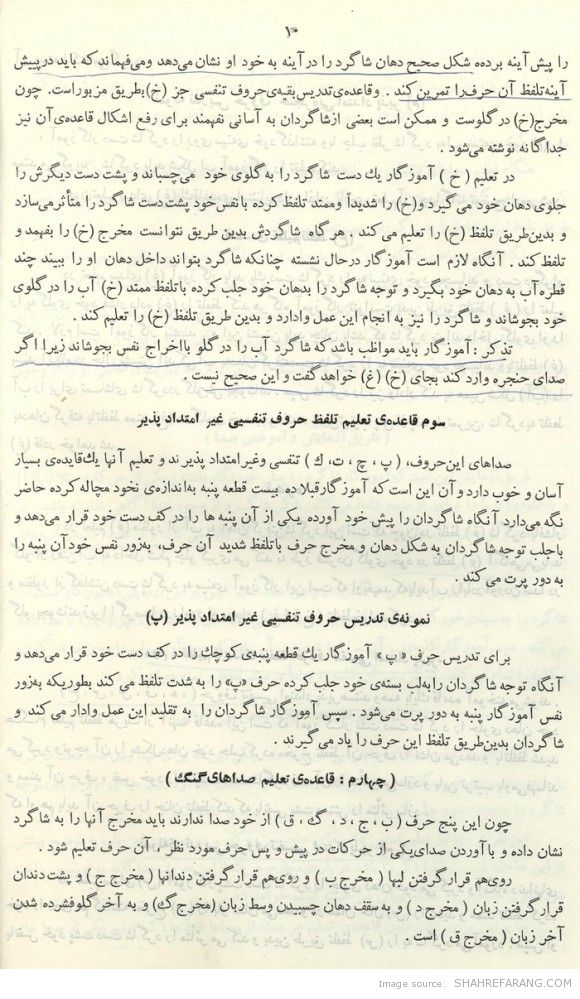 ۱۰
را پیش آینه برده شکل صحیح دهان شاگرد را در آینه به خود او نشان می‌دهد و می‌فهماند که باید در پیش
آینه تلفظ آن حرف را تمرین کند . و قاعده‌ی تدریس بقیه‌ی حروف تنفسی جز (خ) بطریق مزبور است. چون
مخرج (خ) در گلوست و ممکن است بعضی از شاگردان به آسانی نفهمند برای رفع اشکال قاعده‌ی آن نیز
جداگانه نوشته می‌شود .
در تعلیم ( خ ) آموزگار یك دست شاگرد را به گلوی خود می‌چسباند و پشت دست دیگرش را
جلوی دهان خود می گیرد و (خ) را شدیداً و ممتد تلفظ کرده با نفس خود پشت دست شاگرد را متأثر می‌سازد
و بدین‌طریق تلفظ (خ) را تعلیم می کند . هر گاه شاگردش بدین طریق نتوانست مخرج (خ) را بفهمد و
تلفظ کند . آنگاه لازم است آموزگار در حال نشسته چنانکه شاگرد بتواند داخل دهان او را ببیند چند
قطره آب به دهان خود بگیرد و توجه شاگرد را بدهان خود جلب کرده با تلفظ ممتد (خ) آب را در گلوی
خود بجوشاند و شاگرد را نیز به انجام این عمل وادارد و بدین طریق تلفظ (خ) را تعلیم کند .
تذکر : آموزگار باید مواظب باشد که شاگرد آب را در گلو با اخراج نفس بجوشاند زیرا اگر
صدای حنجره وارد کند بجای (خ) (غ) خواهد گفت و این صحیح نیست .
سوم قاعده‌ی تعلیم تلفظ حروف تنفسی غیر امتداد پذیر
صداهای این حروف، (پ ، چ ، ت، ك ) تنفسی و غیر امتداد پذیرند و تعلیم آنها یك قایده‌ی بسیار
آسان و خوب دارد و آن این است که آموزگار قبلا ده بیست قطعه پنبه به‌اندازه‌ی نخود مچاله کرده حاضر
نگه می‌دارد آنگاه شاگردان را پیش خود آورده یکی از آن پنبه ها را در کف دست خود قرار می‌دهد و
با جلب توجه شاگردان به شکل دهان و مخرج حرف با تلفظ شدید آن حرف، به‌زور نفس خود آن پنبه را
به دور پرت می کند .
نمونه‌ی تدریس حروف تنفسیی غیر امتداد پذیر (پ)
برای تدریس حرف « پ » آموزگار یك قطعه پنبه‌ی کوچك را در کف دست خود قرار می‌دهد و
آنگاه توجه شاگردان را به لب بسته‌ی خود جلب کرده حرف «پ» را به شدت تلفظ می کند بطوریکه به‌زور
نفس آموزگار پنبه به دور پرت می‌شود . سپس آموزگار شاگردان را به تقلید این عمل وادار می‌کند و
شاگردان بدین‌طریق تلفظ این حرف را یاد می‌گیرند .
( چهارم : قاعده‌ی تعلیم صداهای گنگ )
چون این پنج حرف ( ب ، ج ، د ، گ ، ق ) از خود صدا ندارند باید مخرج آنها را به شاگرد
نشان داده و با آوردن صدای یکی از حرکات در پیش و پس حرف مورد نظر ، آن حرف تعلیم شود .
روی‌هم قرار گرفتن لبها ( مخرج ب ) و روی‌هم قرار گرفتن دندانها ( مخرج ج ) و پشت دندان
قرار گرفتن زبان ( مخرج د ) و به سقف دهان چسبیدن وسط زبان (مخرج گ) و به آخر گلو فشرده شدن
آخر زبان ( مخرج ق ) است .
Image source: SHAHREFARANG.COM